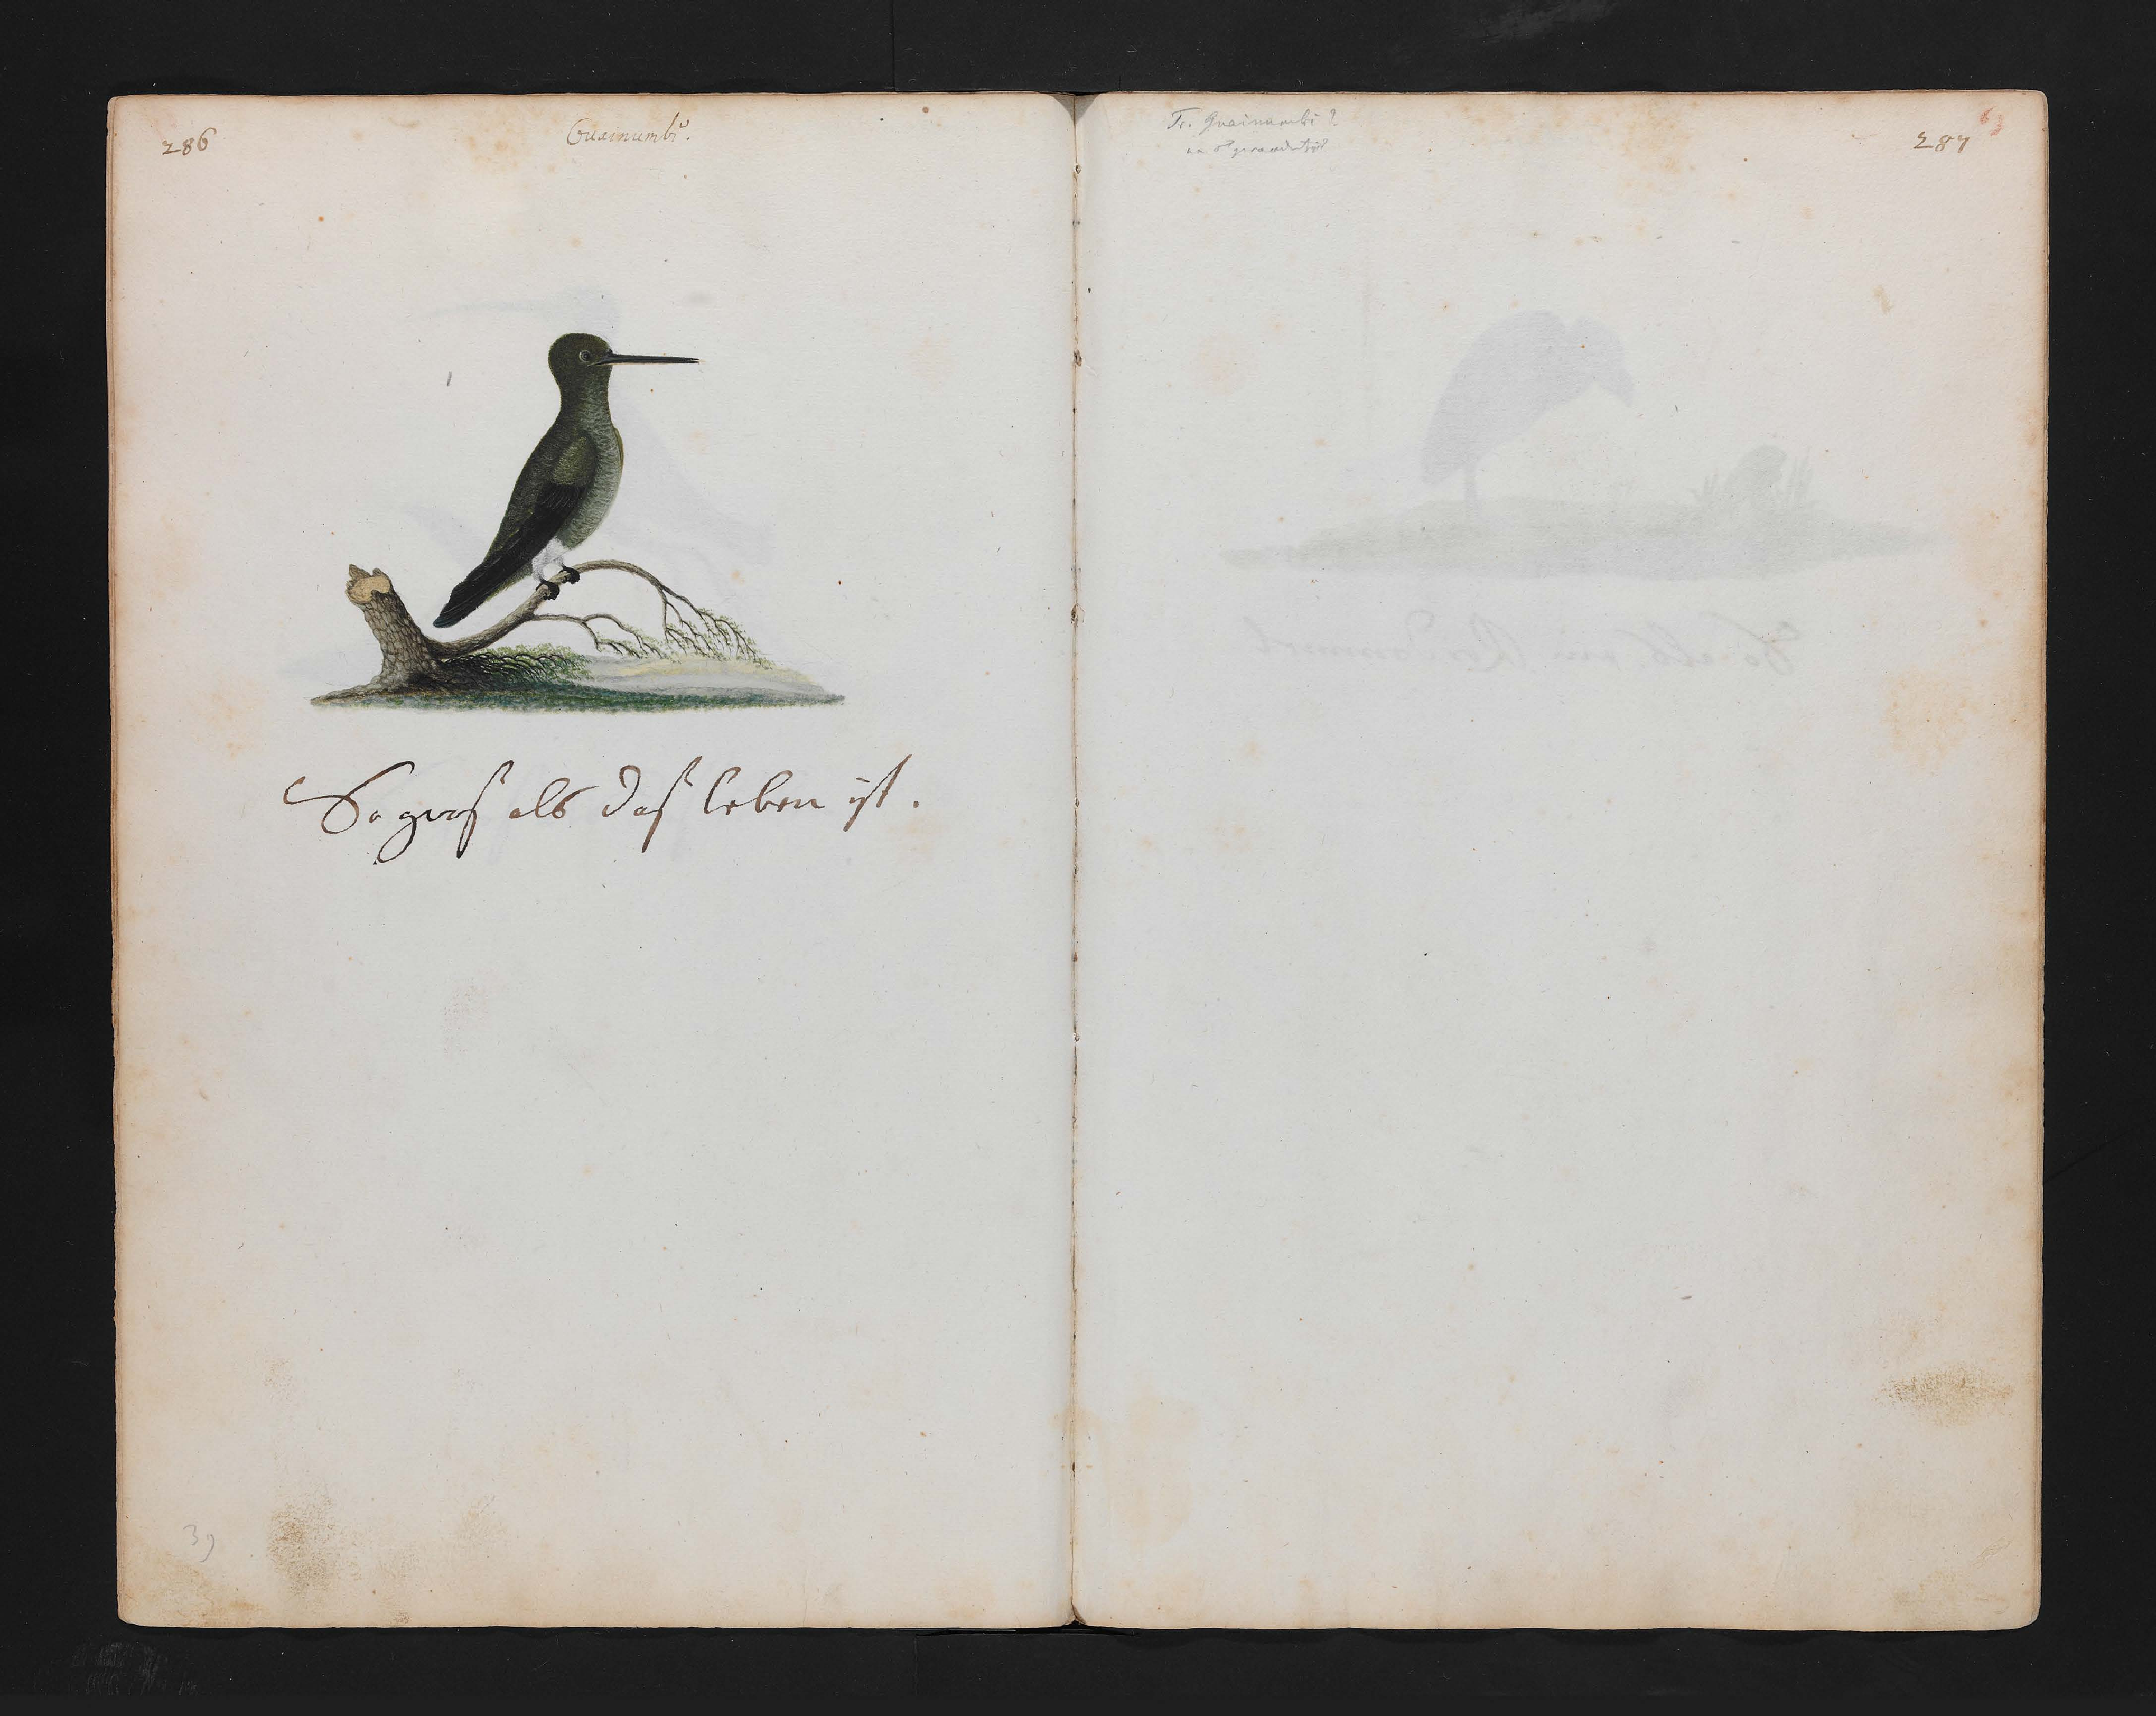 286
Guainumbi.
So gros als das leben ist.
39
Tr. Guainumbi?
287
63